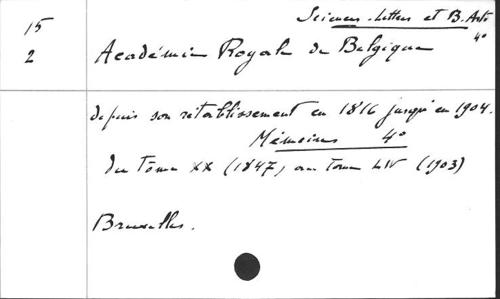 Sciences - Lettres et B. Arts
4°
15
2 Académie Royale de Belgique
depuis son rétablissement en 1816 jusqu'en 1904.
Mémoires 4°
Du Tôme XX (1847) au Tome LIV (1903)
Bruxelles.